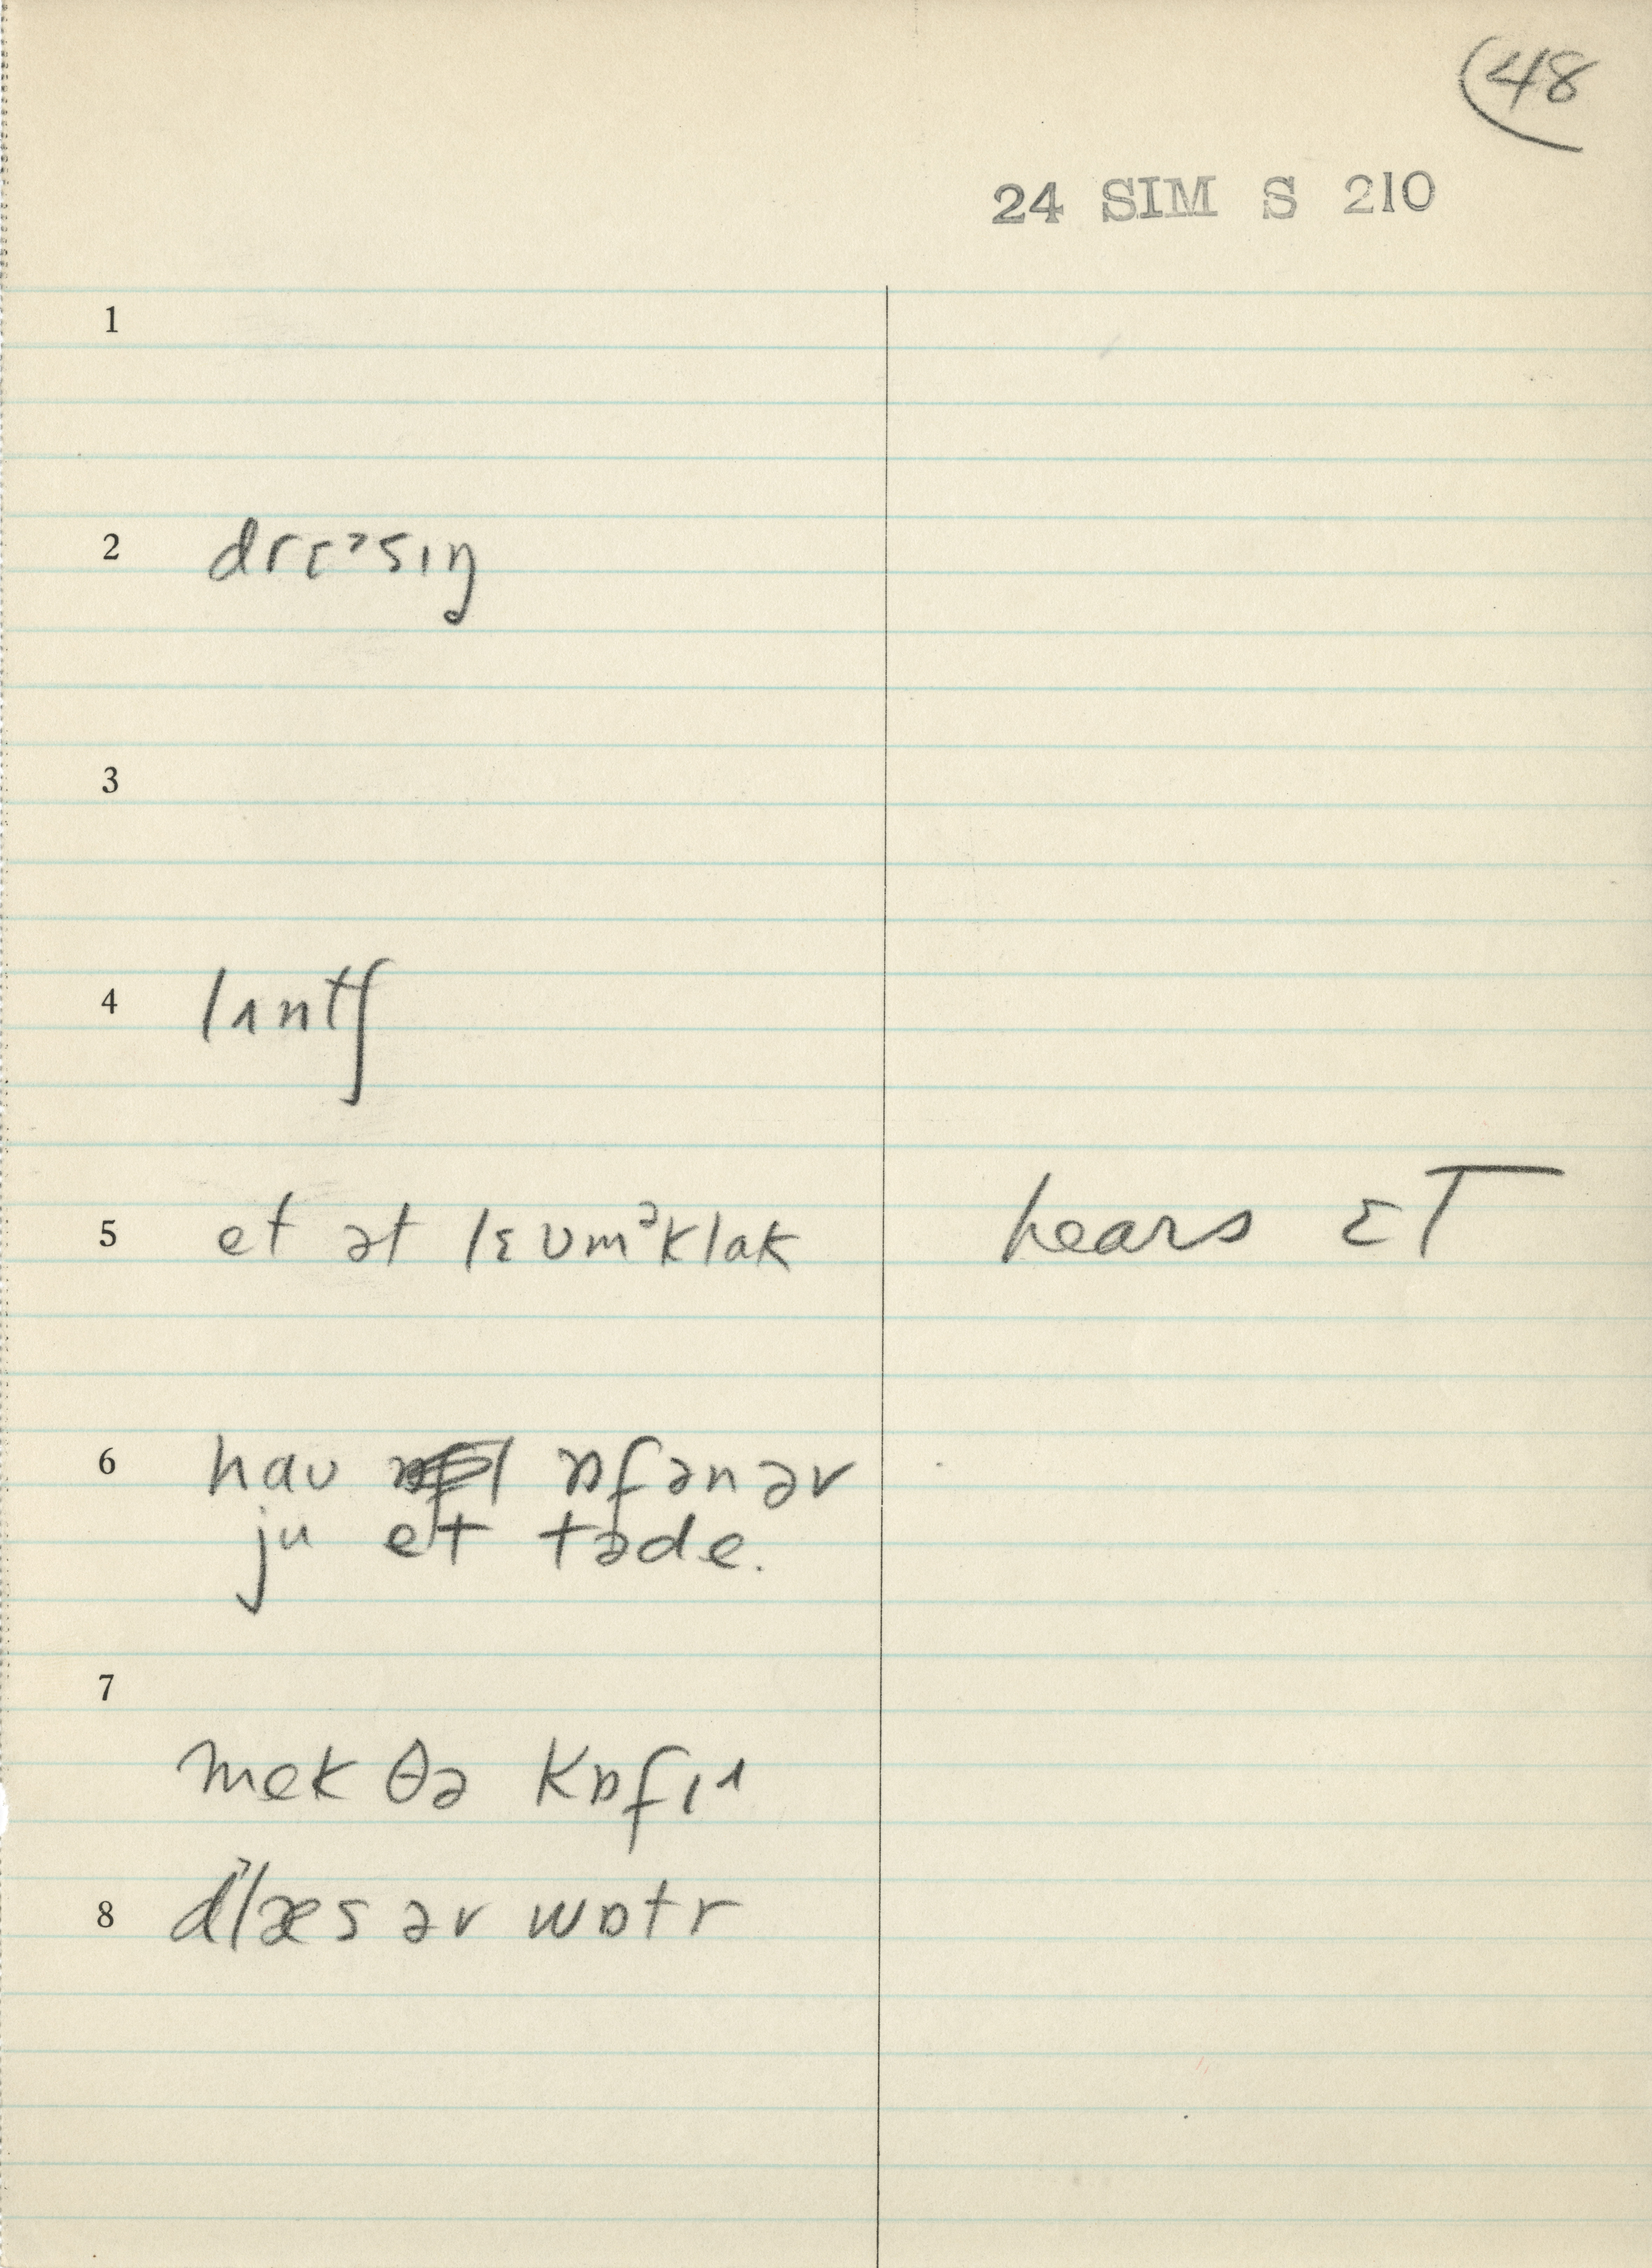 48
24 SIM S 210
1
2 drɛˀsɪŋ
3
4 lʌntʃ
5 et ət lɛʊmᵊklak hears ɛT
6 haʊ ɒfən ər
ju et təde.
7
mek θə kɒfɪˈ
8 glæs əv wɒtr